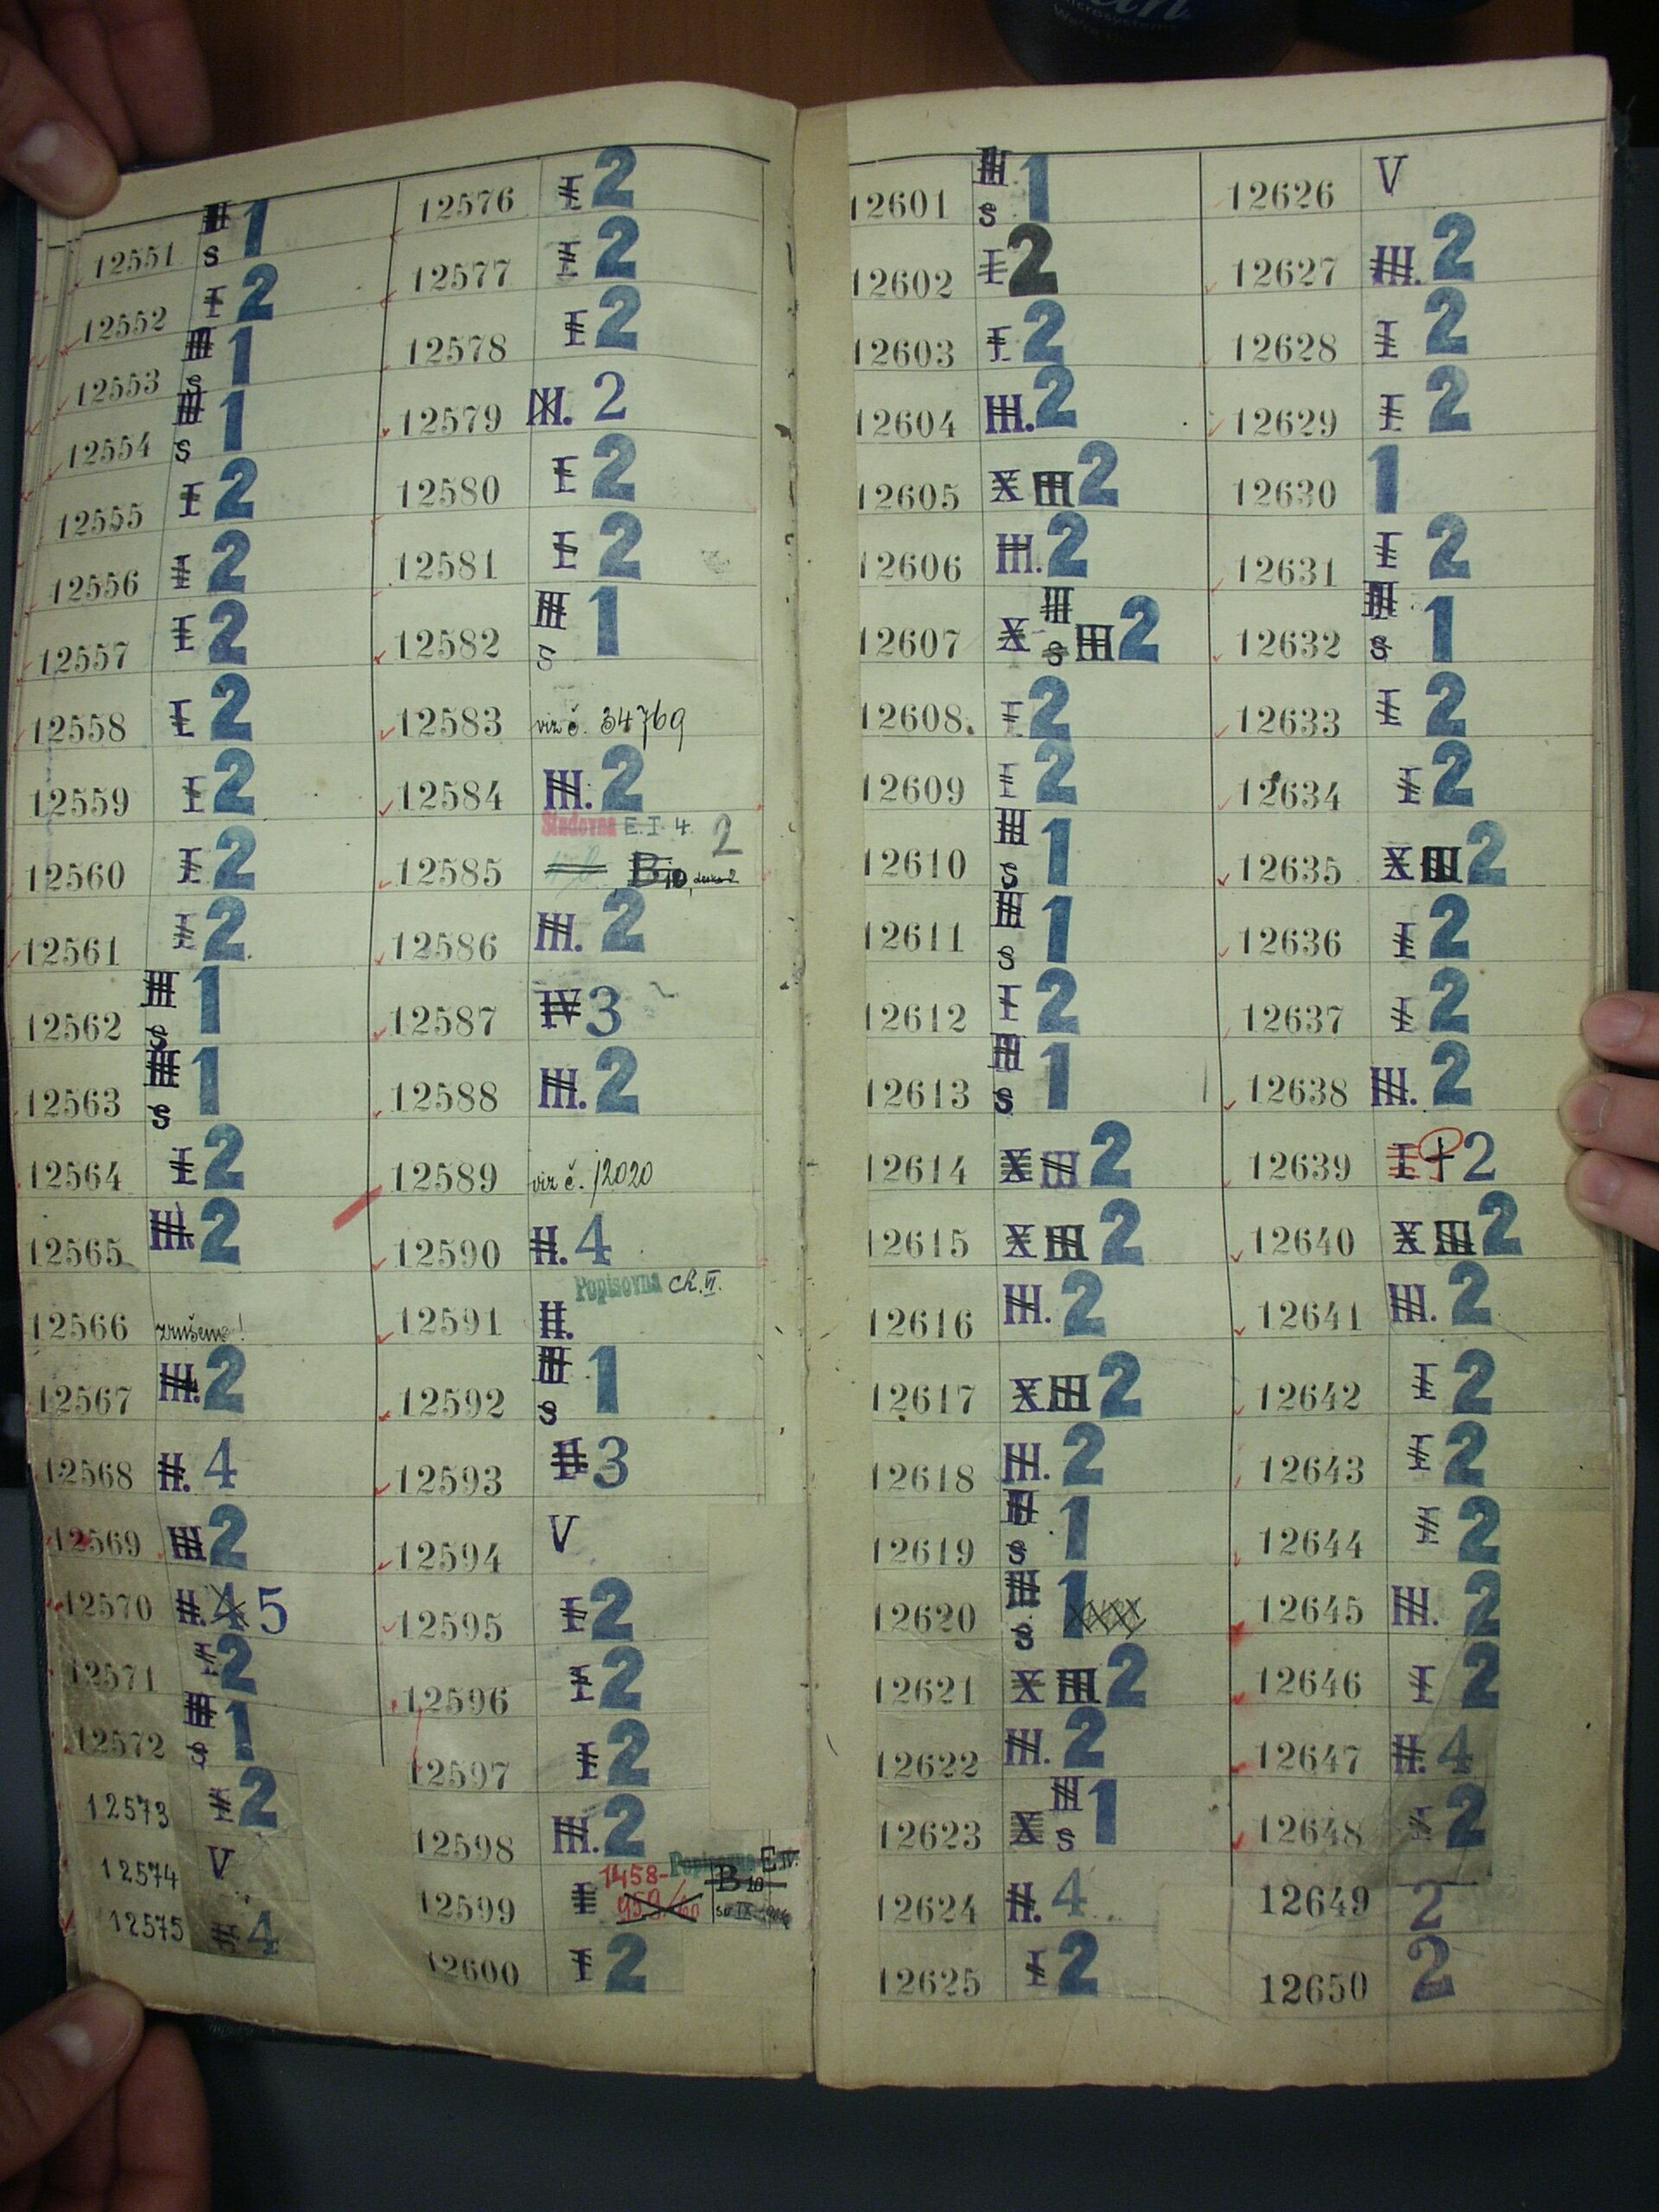 12551 III S 1
12552 I 2
12553 III S 1
12554 III S 1
12555 I 2
12556 I 2
12557 I 2
12558 I 2
12559 I 2
12560 I 2
12561 I 2
12562 III S 1
12563 III S 1
12564 I 2
12565 III. 2
12566 zrušeno!
12567 III. 2
12568 II. 4
12569 III 2
12570 II. 4 5
12571 I 2
12572 III S 1
12573 I 2
12574 V
12575 II 4
12576 I 2
12577 I 2
12578 I 2
12579 III. 2
12580 I 2
12581 I 2
12582 III S 1
12583 viz č. 34769
12584 III. 2
Studovna E. I. 4. 2
12585 B 10,
12586 III. 2
12587 IV 3
12588 III. 2
12589 viz č. 12020
12590 II. 4
Popisovna ch. VI.
12591 II.
12592 III S 1
12593 II. 3
12594 V
12595 I 2
12596 I 2
12597 I 2
12598 III. 2
1458- Popisovna E IV.
12599 I 959/60 B 10
12600 I 2
12601 III S 1
12602 I 2
12603 I 2
12604 III. 2
12605 X III 2
12606 III. 2
12607 X III S III 2
12608. I 2
12609 I 2
12610 III S 1
12611 III S 1
12612 I 2
12613 III S 1
12614 X III 2
12615 X III 2
12616 III. 2
12617 X III 2
12618 III. 2
12619 III S 1
12620 III S 1
12621 X III 2
12622 III. 2
12623 X III S 1
12624 II. 4
12625 I 2
12626 V
12627 III. 2
12628 I 2
12629 I 2
12630 1
12631 I 2
12632 III S 1
12633 I 2
12634 I 2
12635 X III 2
12636 I 2
12637 I 2
12638 III. 2
12639 I + 2
12640 X III 2
12641 III. 2
12642 I 2
12643 I 2
12644 I 2
12645 III. 2
12646 I 2
12647 II. 4
12648 I 2
12649 2
12650 2